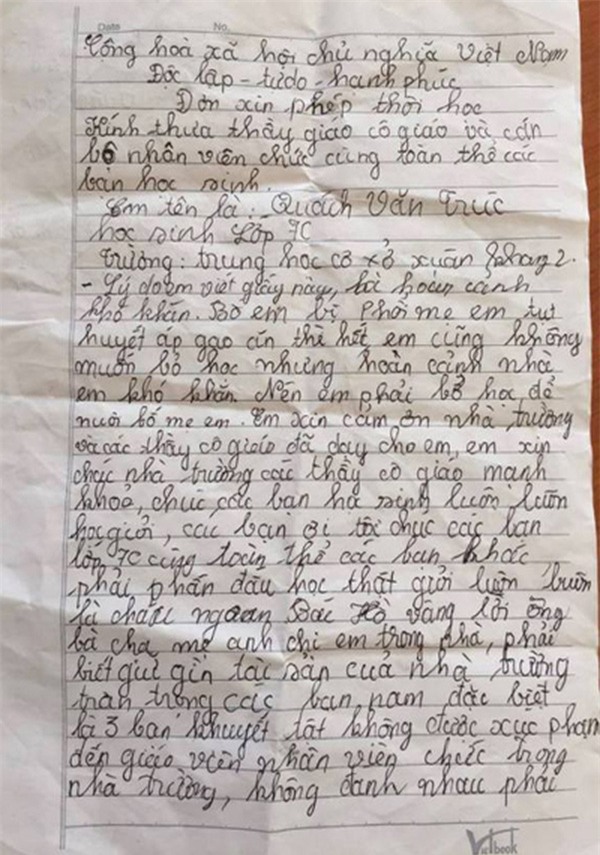 Date No.
Cộng hoà xã hội chủ nghĩa Việt Nam
Độc lập - tự do - hạnh phúc
Đơn xin phép thôi học
Kính thưa thầy giáo cô giáo và cán
bộ nhân viên chức cùng toàn thể các
bạn học sinh.
Em tên là: Quách Văn Trúc
học sinh Lớp 7C
Trường: trung học cơ xở xuân khang 2.
- Lý do em viết giấy này, là hoàn cảnh
khó khăn. Bố em bị phổi mẹ em tụt
huyết áp gạo ăn thì hết, em cũng không
muốn bỏ học nhưng hoàn cảnh nhà
em khó khăn. Nên em phải bỏ học để
nuôi bố mẹ em. Em xin cảm ơn nhà trường
và các thầy cô giáo đã dạy cho em, em xin
chúc nhà trường các thầy cô giáo mạnh
khoẻ, chúc các bạn học sinh luôn luôn
học giỏi, các bạn ơi tôi chúc các bạn
lớp 7C cùng toàn thể các bạn khác
phải phấn đấu học thật giởi luôn luôn
là cháu ngoan Bác Hồ vâng lời ông
bà cha mẹ anh chị em trong nhà, phải
biết giữ gìn tài sản cuả nhà trường
trân trọng các bạn nam đặc biệt
là 3 bạn khuyết tật không được xúc phạm
đến giáo viên nhân viên chức trong
nhà trường, không đánh nhau phải
Vietbook